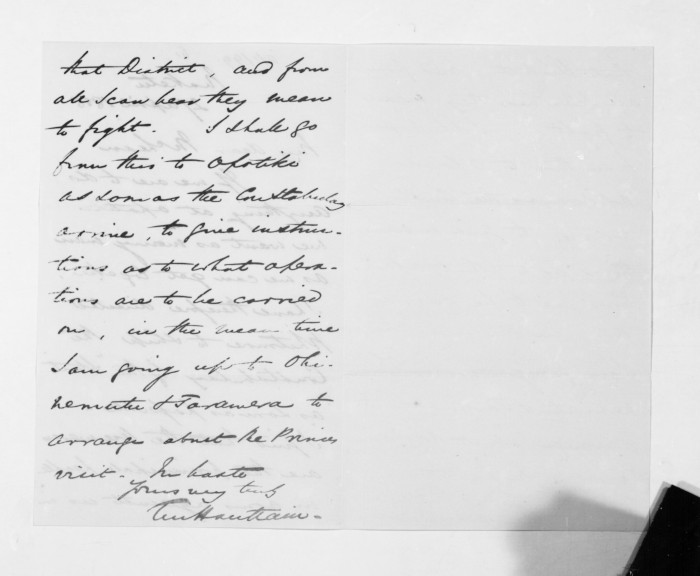 that District, and from
all I can hear they mean
to fight. I shall go
from this to Opotiki
as soon as the Constabulary
arrive, to give instruc-
tions as to what opera-
tions are to be carried
on, in the mean time
I am going up to Ohi-
nemutu & Tarawera to
arrange about the Princes
visit. In haste
Yours very truly
Haultain